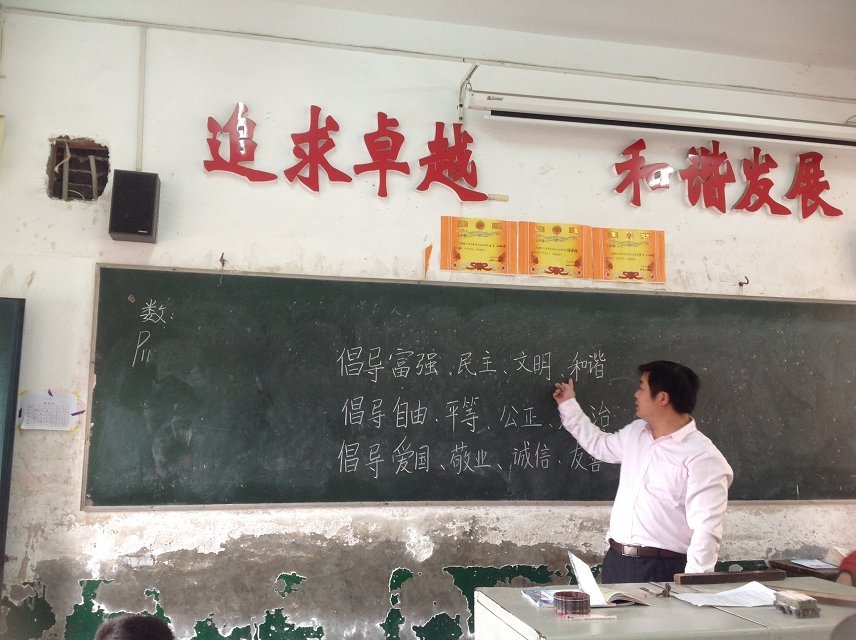 追求卓越 和谐发展
数:
P11
倡导富强、民主、文明、和谐
倡导自由、平等、公正、治
倡导爱国、敬业、诚信、友善